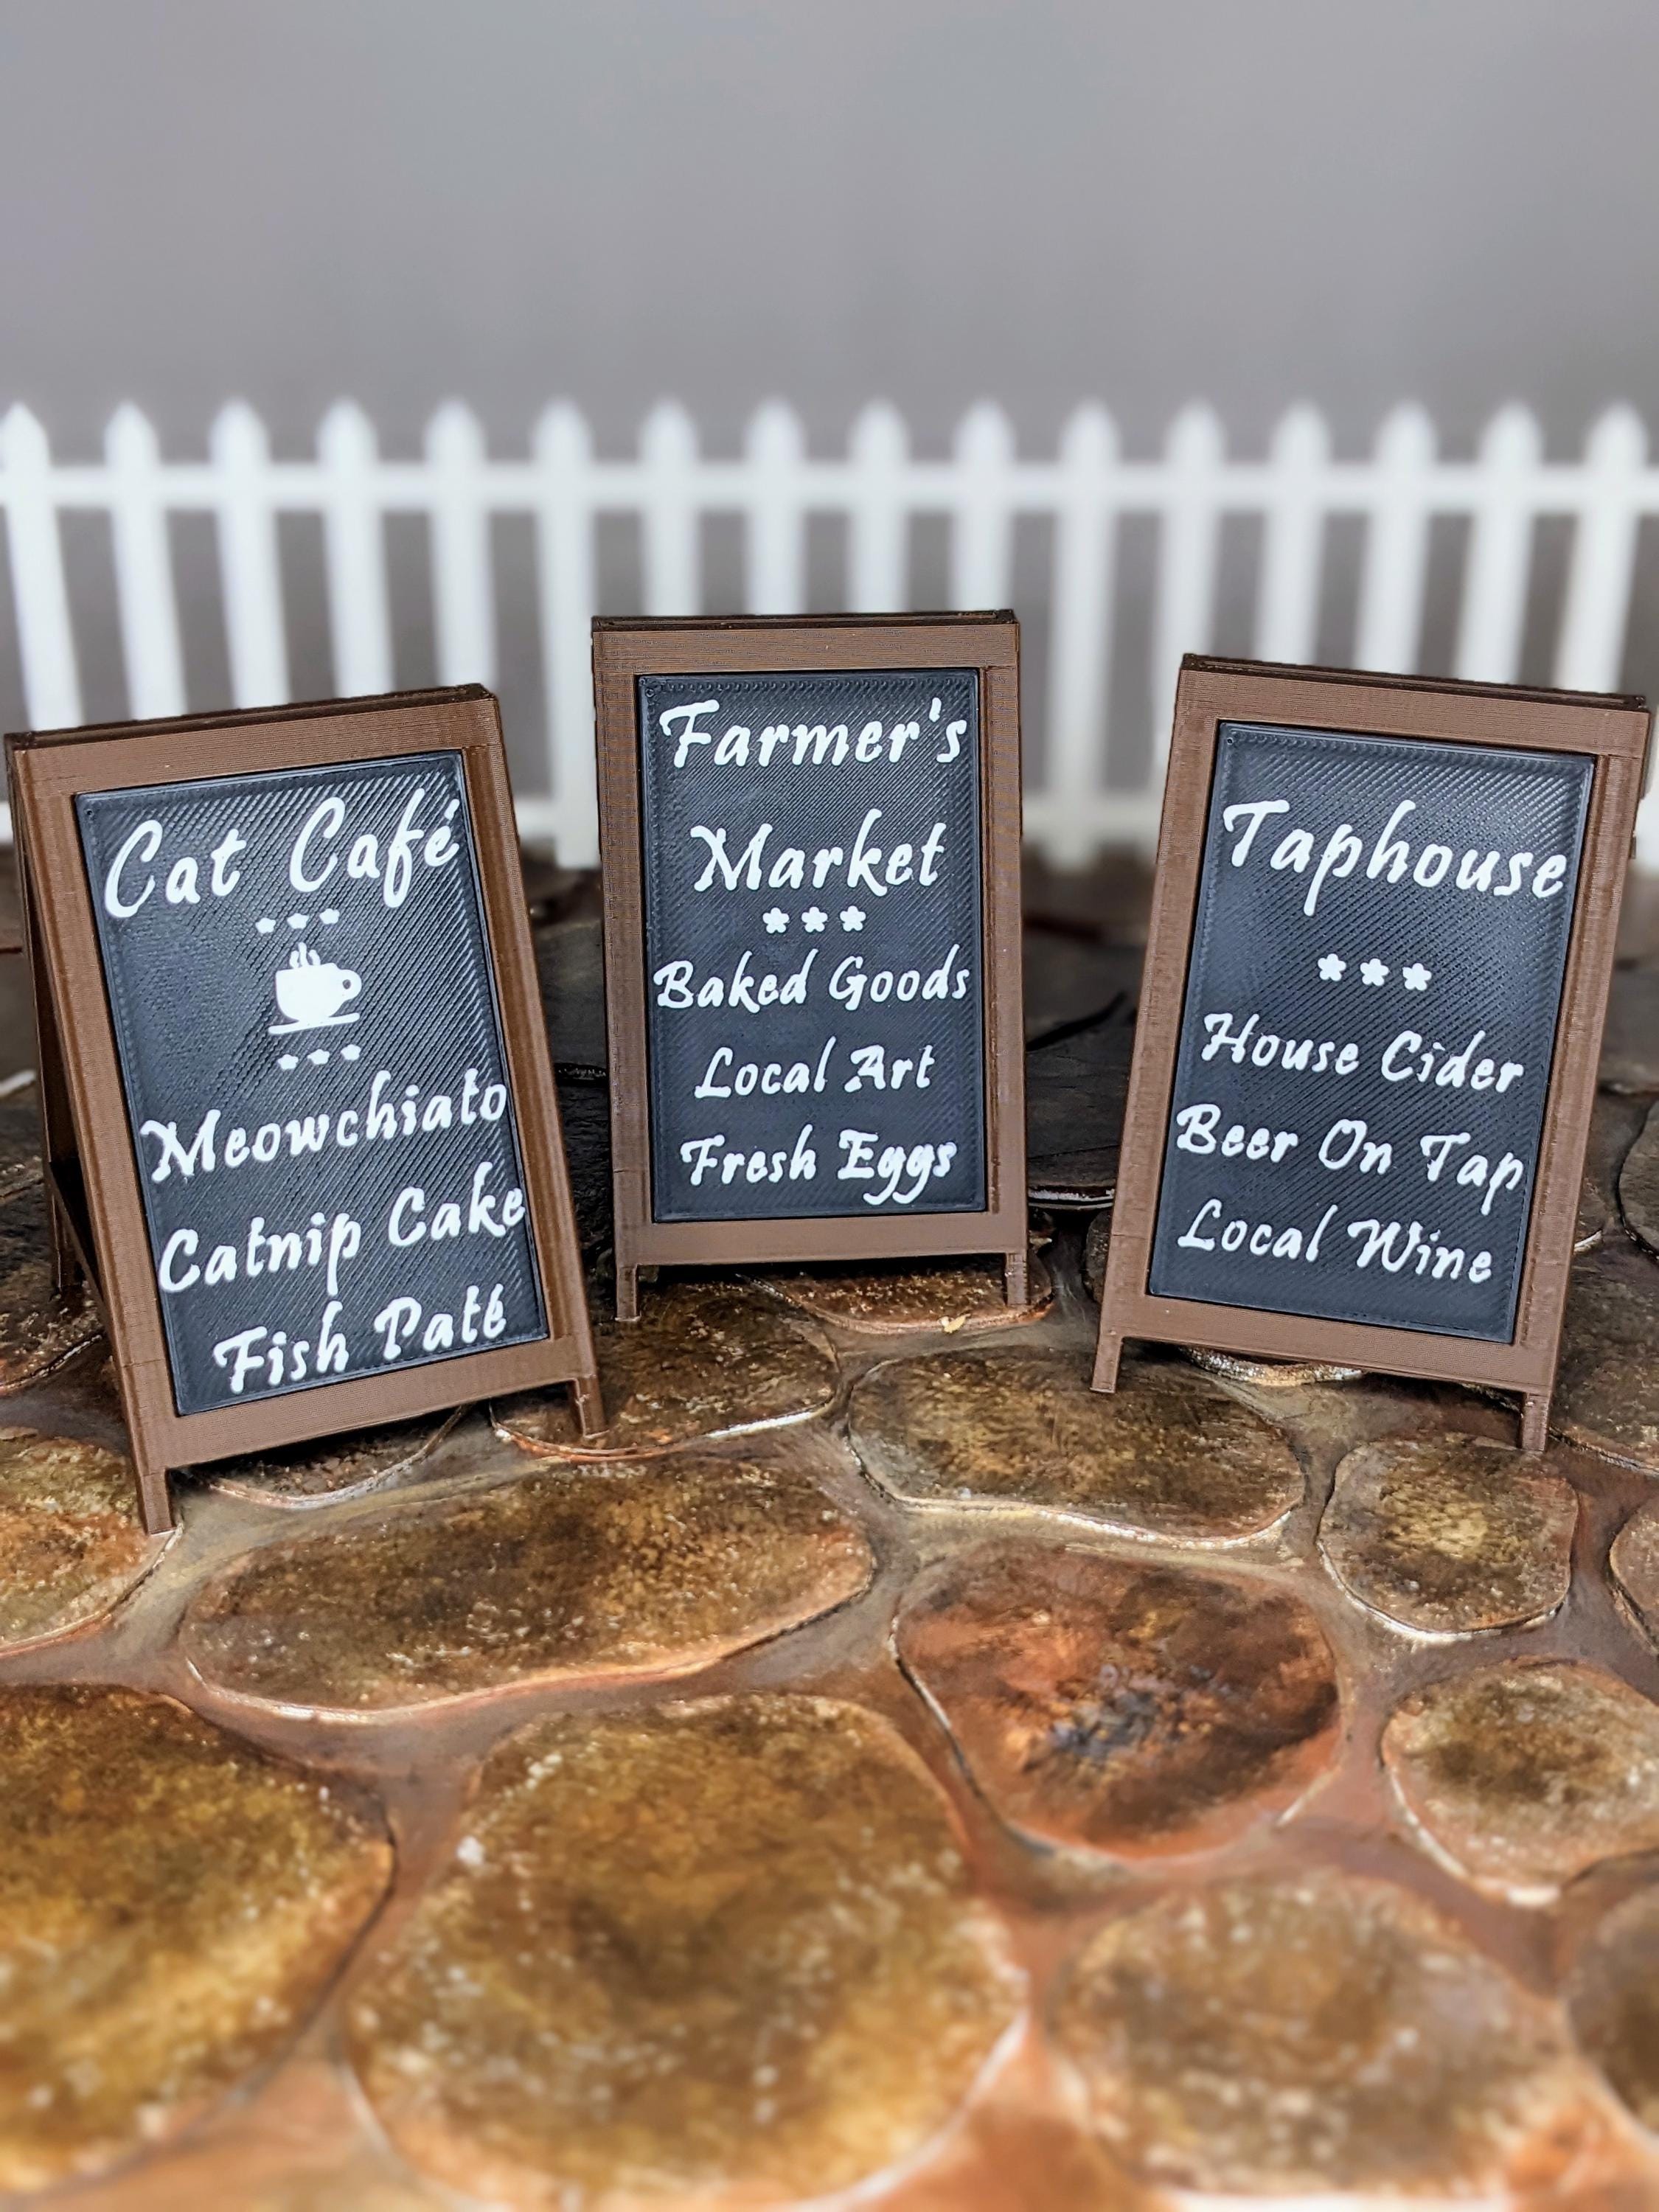 Cat Café
Meowchiato
Catnip Cake
Fish Paté
Farmer's
Market
Baked Goods
Local Art
Fresh Eggs
Taphouse
House Cider
Beer On Tap
Local Wine